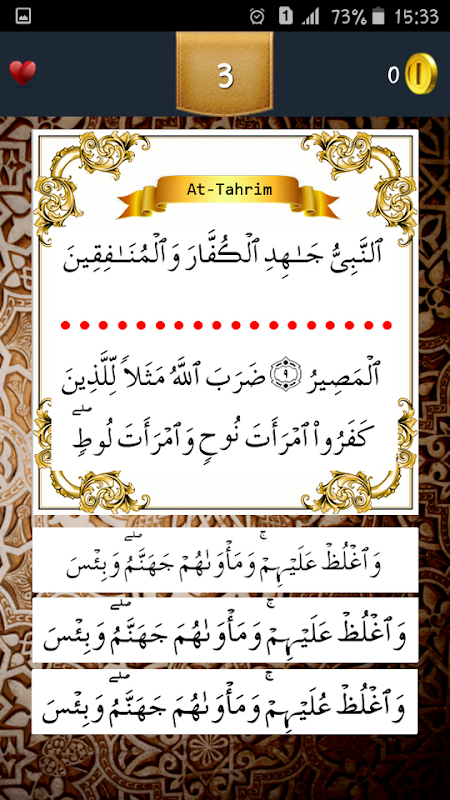 1 73% 15:33
3
0
At-Tahrim
ٱلنَّبِىُّ جَـٰهِدِ ٱلْكُفَّارَ وَٱلْمُنَـٰفِقِينَ
ٱلْمَصِيرُ ۝٩ ضَرَبَ ٱللَّهُ مَثَلًا لِّلَّذِينَ
كَفَرُوا۟ ٱمْرَأَتَ نُوحٍ وَٱمْرَأَتَ لُوطٍ ۖ
وَٱغْلُظْ عَلَيْهِمْ ۚ وَمَأْوَىٰهُمْ جَهَنَّمُ ۖ وَبِئْسَ
وَٱغْلُظْ عَلَيْهِمْ ۚ وَمَأْوَىٰهُمَ جَهَنَّمُ ۖ وَبِئْسَ
وَٱغْلُظْ عُلَيْهِمْ ۚ وَمَأْوَىٰهُمْ جَهَنَّمُ ۖ وَبِئْسَ